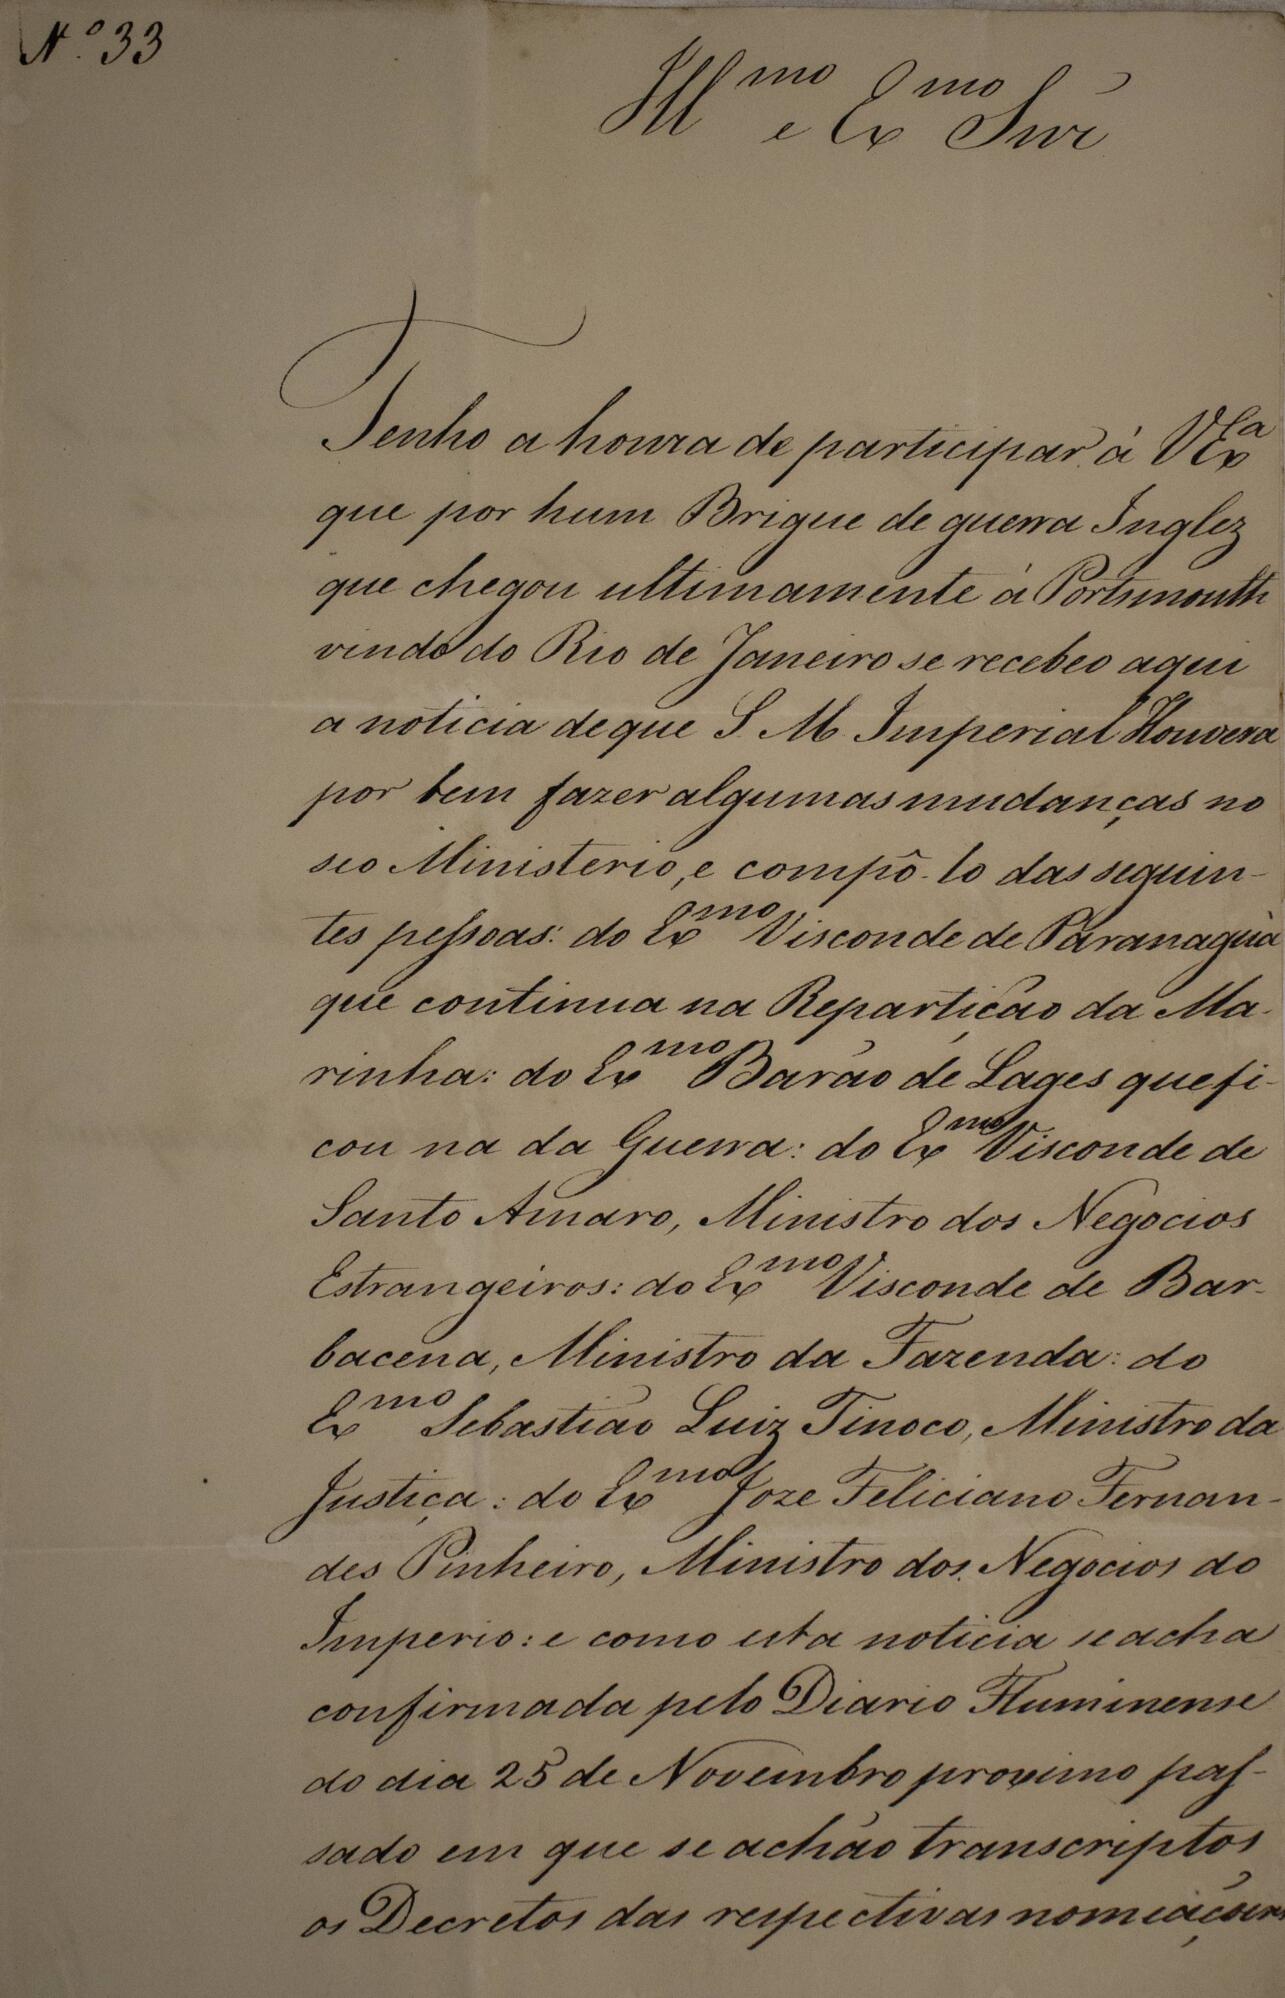 Nº 33
Illmo e Exmo Snr
Tenho a honra de participar à VExa
que por hum Brigue de guerra Inglez
que chegou ultimamente à Portsmouth
vindo do Rio de Janeiro se recebeo aqui
a noticia de que S. M. Imperial Houvera
por bem fazer algumas mudanças no
seo Ministerio, e compô-lo das seguin-
tes pessoas: do Exmo Visconde de Paranaguà
que continua na Repartição da Ma-
rinha: do Exmo Barão de Lages que fi-
cou na da Guerra: do Exmo Visconde de
Santo Amaro, Ministro dos Negocios
Estrangeiros: do Exmo Visconde de Bar-
bacena, Ministro da Fazenda: do
Exmo Sebastião Luiz Tinoco, Ministro da
Justiça: do Exmo Joze Feliciano Fernan-
des Pinheiro, Ministro dos Negocios do
Imperio: e como esta noticia se acha
confirmada pelo Diario Fluminense
do dia 25 de Novembro proximo pas-
sado em que se achão transcriptos
os Decretos das respectivas nomeaçoens